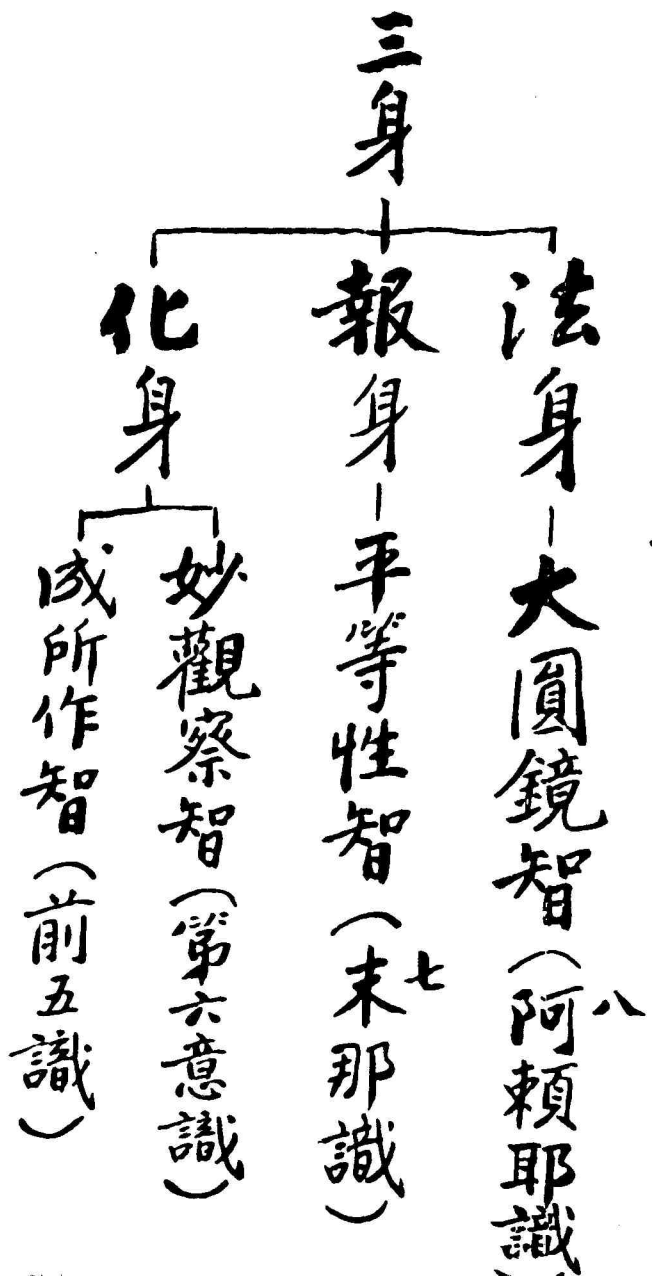 三身
法身
大圓鏡智(阿賴耶識)
八
報身
平等性智(末那識)
七
化身
妙觀察智(第六意識)
成所作智(前五識)